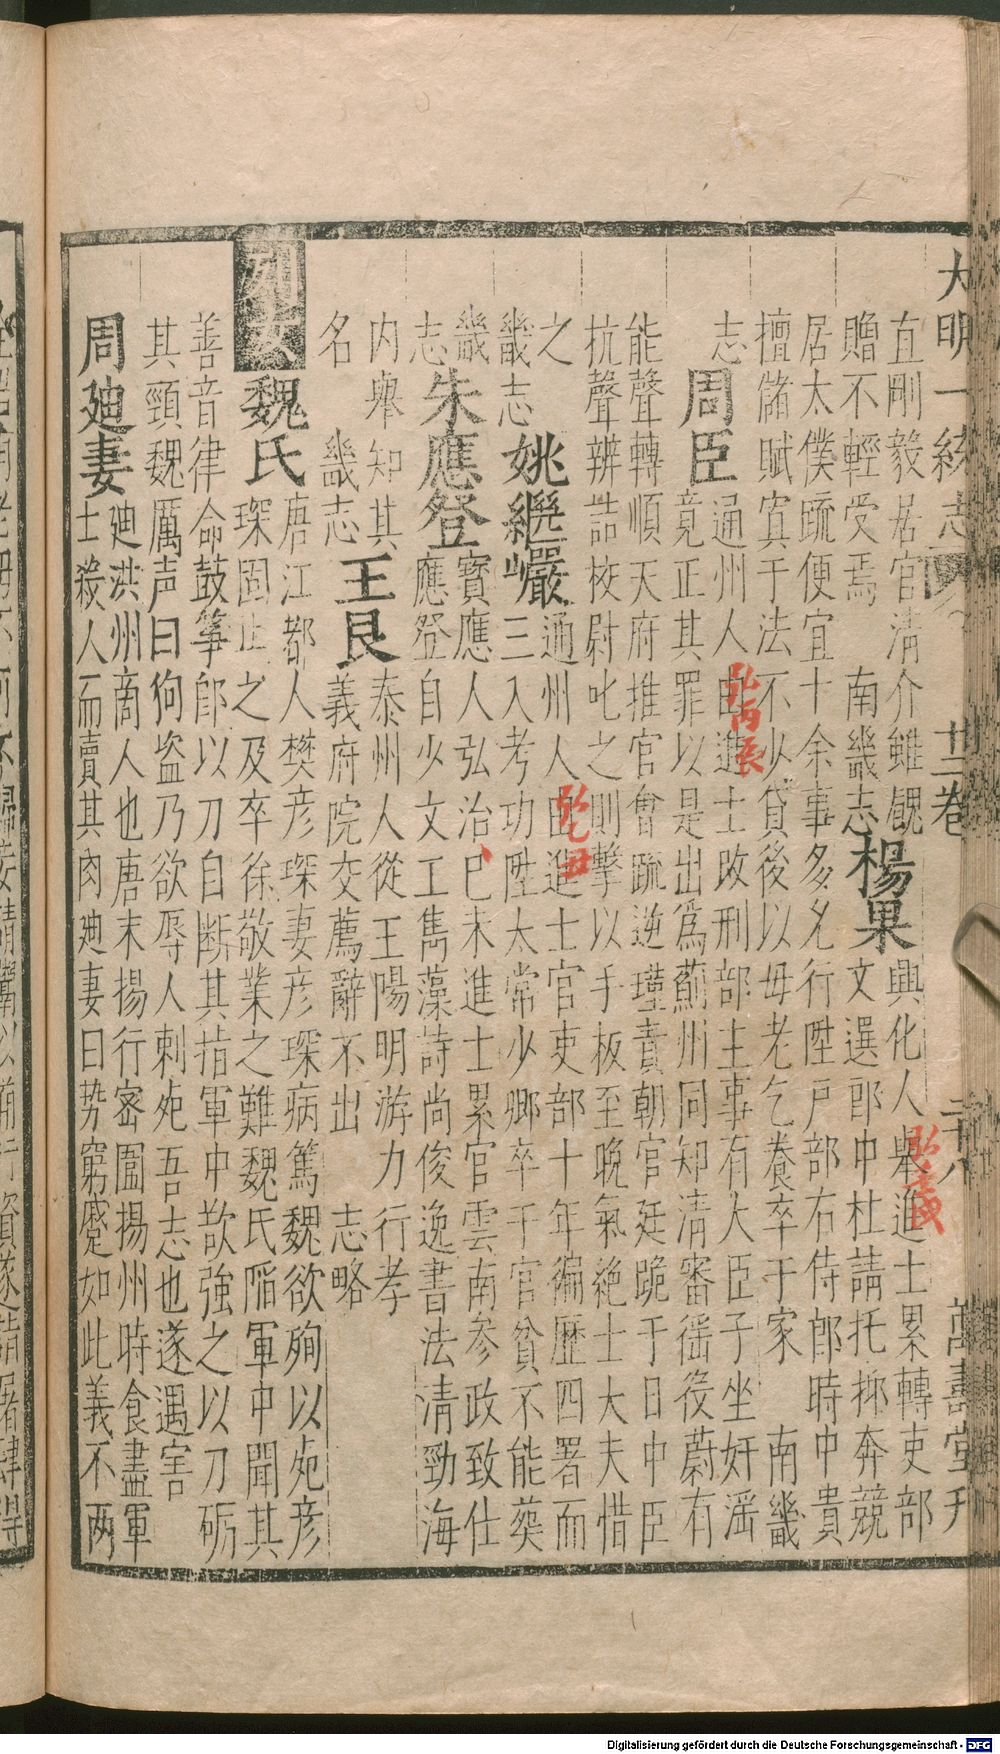 大明一統志 廿二卷 二十八 萬壽堂刋
直剛毅居官清介雖覬
贈不輕受焉 南畿志 楊果 興化人舉進士累轉吏部
文選郎中杜請托抑奔競
居太僕疏便宜十余事多允行陞戶部右侍郎時中貴
擅儲賦寘于法不少貸後以母老乞養卒于家 南畿
志 周臣 通州人由進士改刑部主事有大臣子坐奸滛
竟正其罪以是出爲薊州同知清審徭役蔚有
能聲轉順天府推官會疏逆瑾責朝官廷跪于日中臣
抗聲辨詰校尉叱之則擊以手板至晚氣絶士大夫惜
之 畿志 姚繼巖 通州人由進士官吏部十年徧歷四署而
三入考功陞太常少卿卒于官貧不能葬
畿志 朱應登 寶應人弘治己未進士累官雲南参政致仕
應登自少文工雋藻詩尚俊逸書法清勁海
內舉知其名 畿志 王艮 泰州人從王陽明游力行孝
義府院交薦辭不出 志略
列女 魏氏 唐江都人樊彦琛妻彦琛病篤魏欲殉以死彦
琛固止之及卒徐敬業之難魏氏䧟軍中聞其
善音律命鼓箏郎以刀自断其指軍中欲強之以刀砺
其頸魏厲声曰狗盗乃欲辱人刺死吾志也遂遇害
周廸妻 廸洪州商人也唐末揚行密圍揚州時食盡軍
士殺人而賣其肉廸妻曰势窮蹙如此義不两
弘壬戌
弘丙辰
弘乙丑
Digitalisierung gefördert durch die Deutsche Forschungsgemeinschaft - DFG